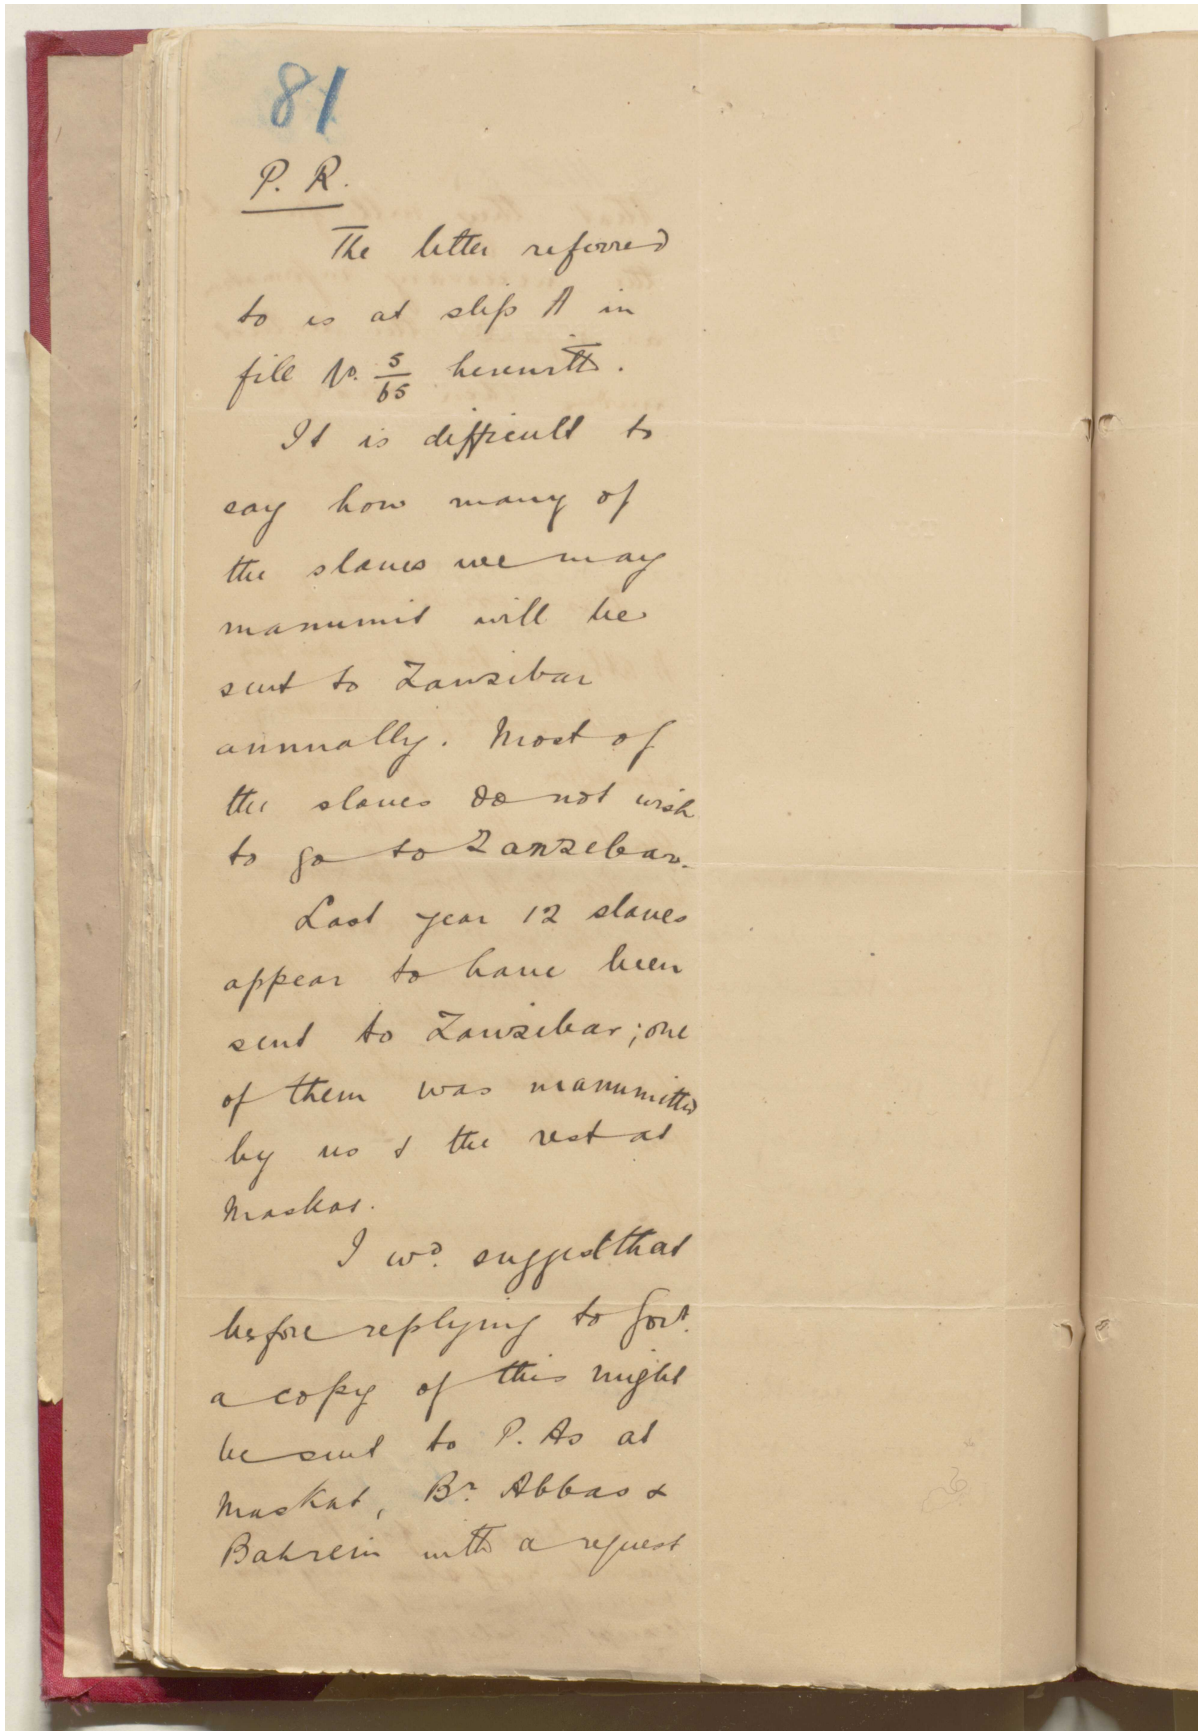 81
P. R.
The letter referred
to is at slip A in
file No. 5/65 herewith.
It is difficult to
say how many of
the slaves we may
manumit will be
sent to Zanzibar
annually. Most of
the slaves do not wish
to go to Zanzibar.
Last year 12 slaves
appear to have been
sent to Zanzibar; one
of them was manumitted
by us & the rest at
Maskat.
I wd. suggest that
before replying to Govt.
a copy of this might
be sent to P. As at
Maskat, Br. Abbas &
Bahrein with a request